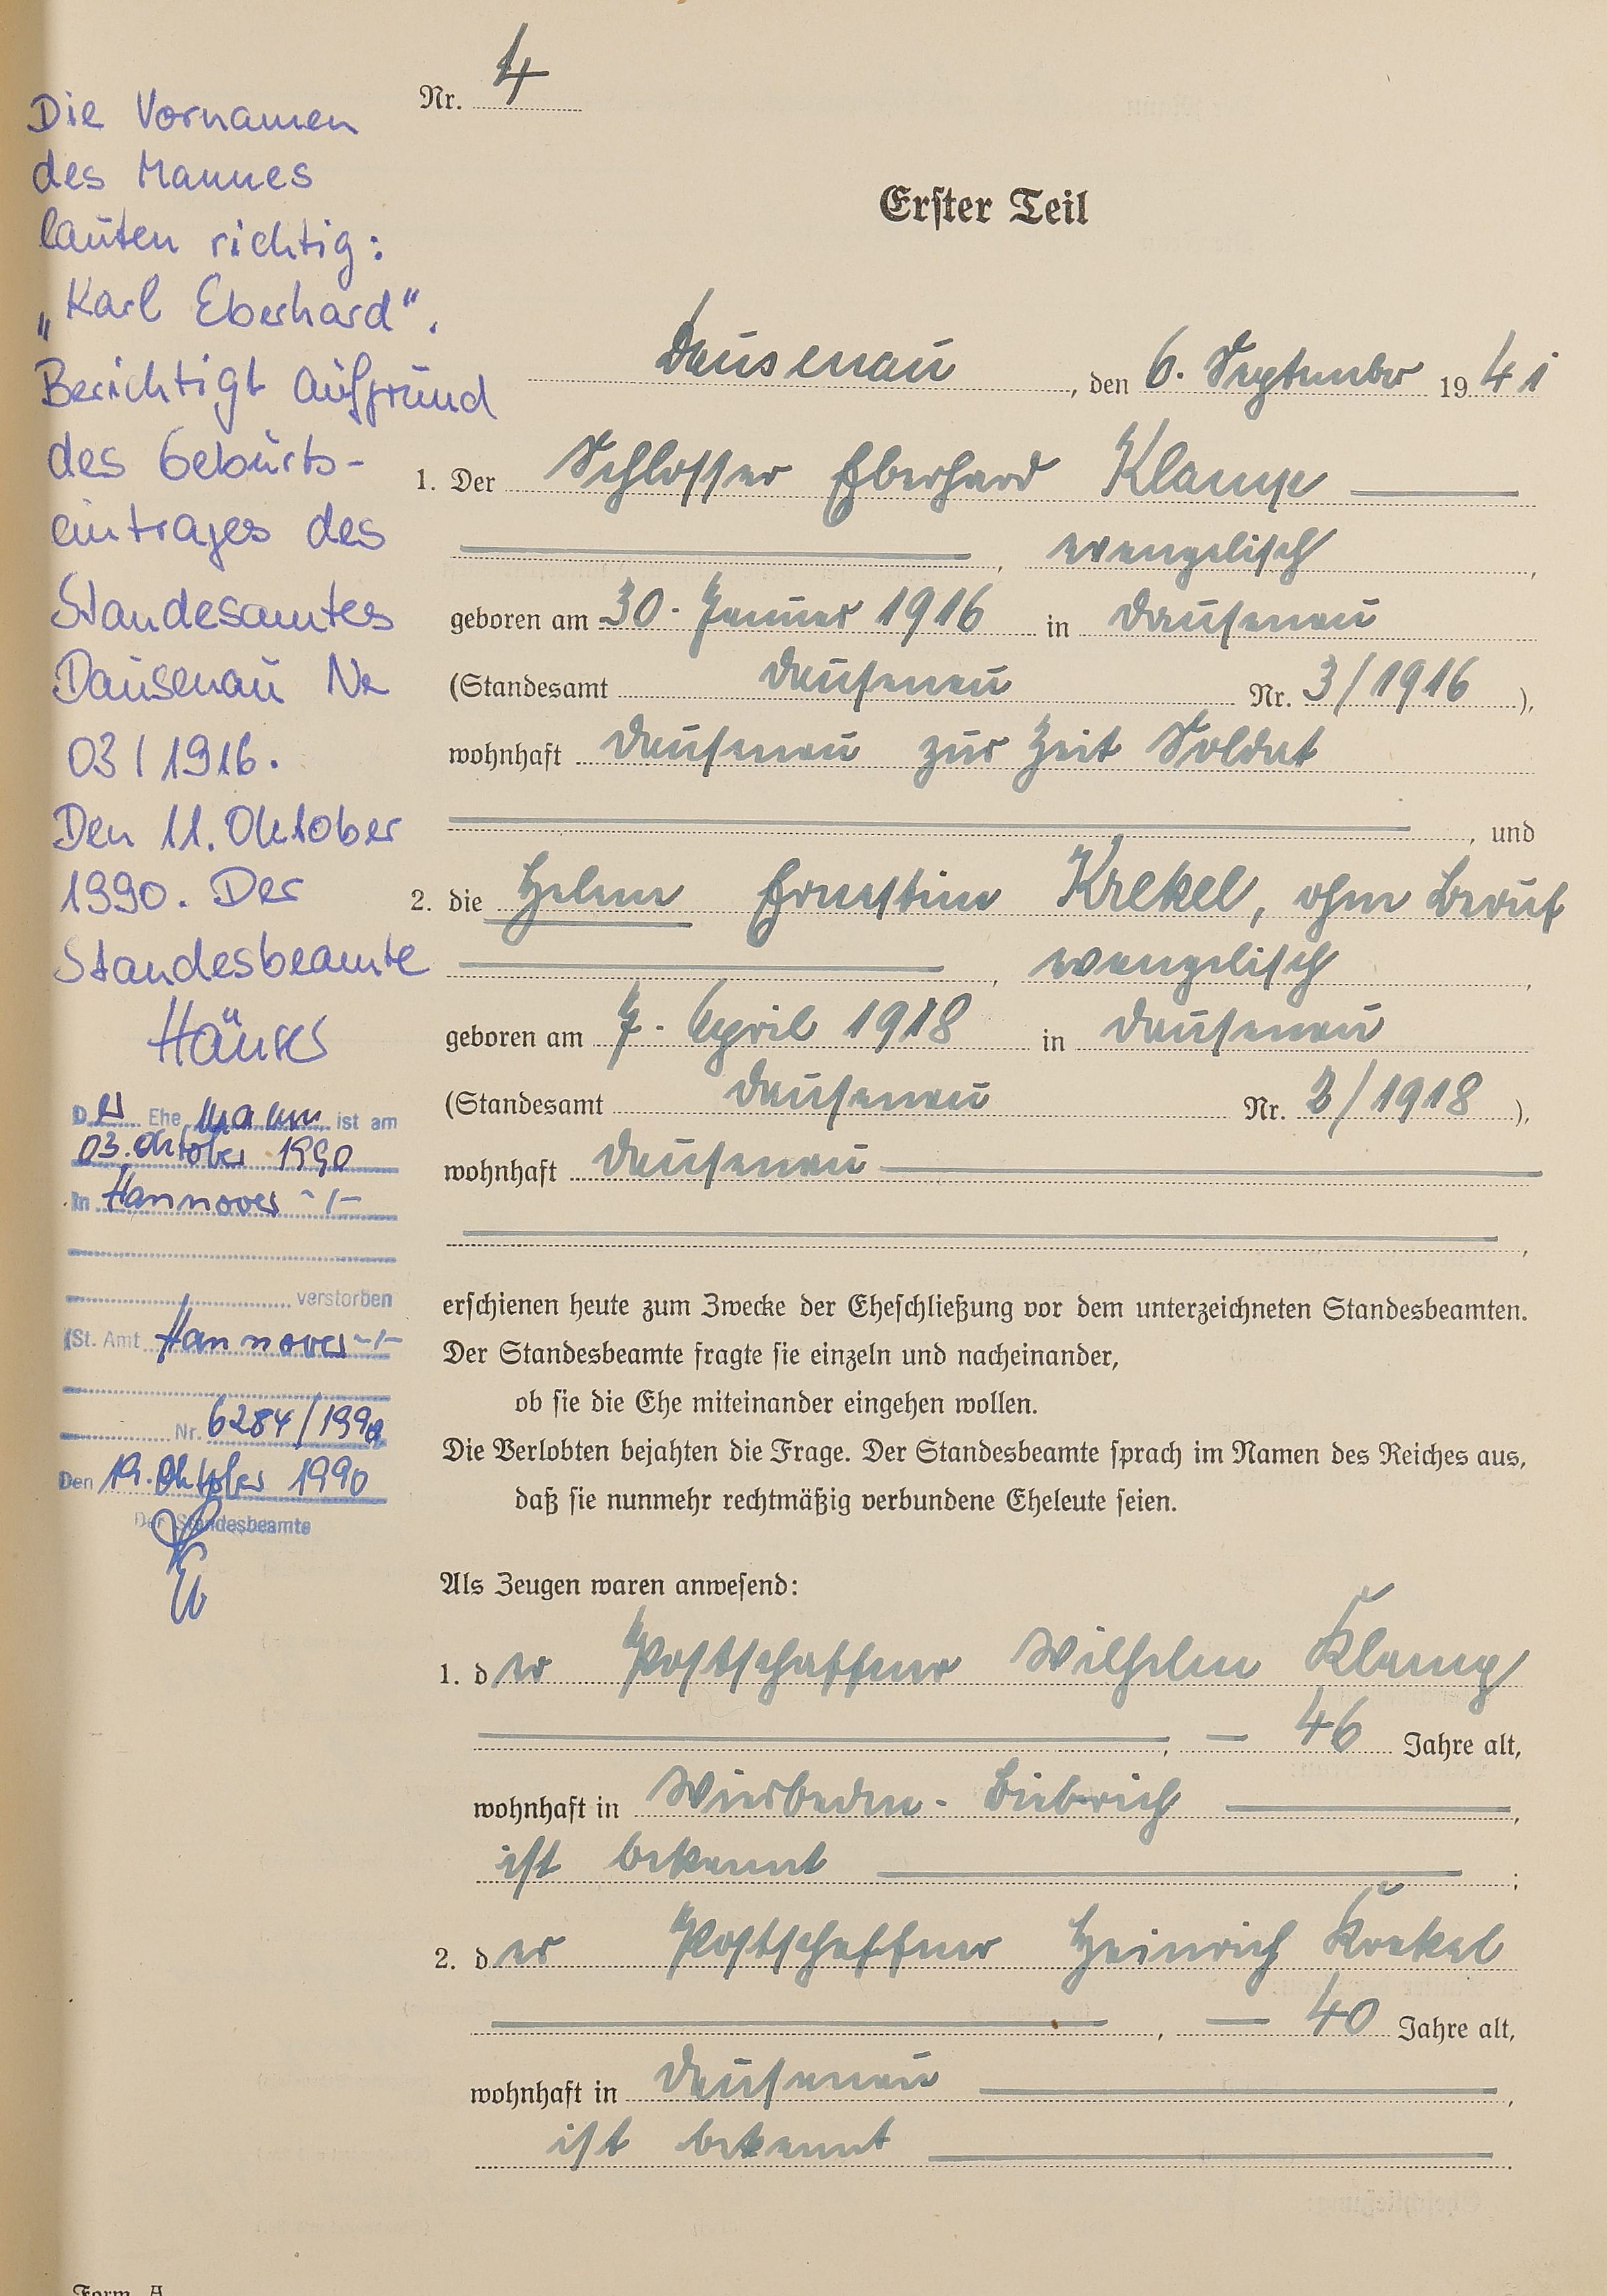 Nr. 4
Erster Teil
Dausenau, den 6. September 1941
1. Der Schlosser Eberhard Klamp
, evangelisch,
geboren am 30. Januar 1916 in Dausenau
(Standesamt Dausenau Nr. 3/1916),
wohnhaft Dausenau zur Zeit Soldat
, und
2. die Helene Ernestine Krekel, ohne Beruf
, evangelisch,
geboren am 7. April 1918 in Dausenau
(Standesamt Dausenau Nr. 3/1918),
wohnhaft Dausenau
,
erschienen heute zum Zwecke der Eheschließung vor dem unterzeichneten Standesbeamten.
Der Standesbeamte fragte sie einzeln und nacheinander,
ob sie die Ehe miteinander eingehen wollen.
Die Verlobten bejahten die Frage. Der Standesbeamte sprach im Namen des Reiches aus,
daß sie nunmehr rechtmäßig verbundene Eheleute seien.
Als Zeugen waren anwesend:
1. der Postschaffner Wilhelm Klamp
, — 46 Jahre alt,
wohnhaft in Wiesbaden-Biebrich,
ist bekannt;
2. der Postschaffner Heinrich Krekel
, — 40 Jahre alt,
wohnhaft in Dausenau,
ist bekannt.
Die Vornamen
des Mannes
lauten richtig:
„Karl Eberhard".
Berichtigt aufgrund
des Geburts-
eintrages des
Standesamtes
Dausenau Nr
03/1916.
Den 11. Oktober
1990. Der
Standesbeamte
Der Ehemann ist am
03. Oktober 1990
in Hannover -/-
verstorben
(St. Amt Hannover -/-
Nr. 6284/1990
Den 19. Oktober 1990
Der Standesbeamte
Form. A